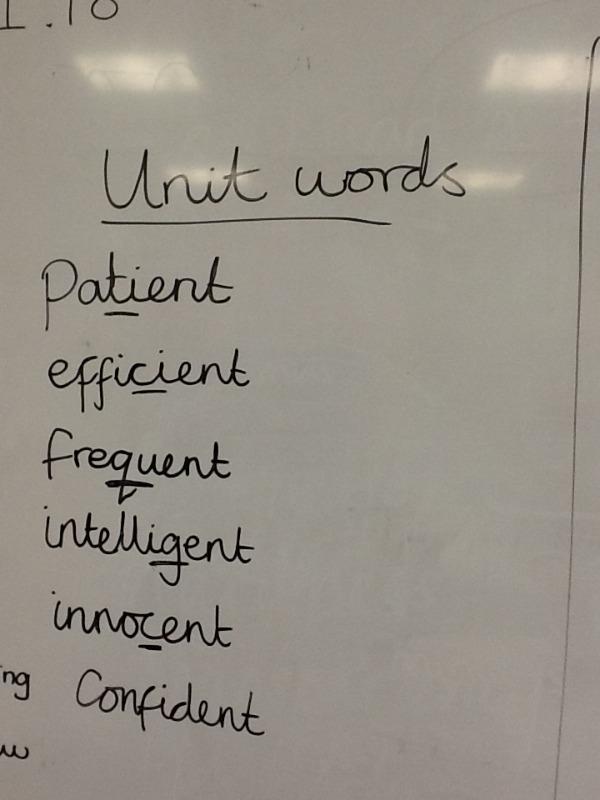 Unit words
patient
efficient
frequent
intelligent
innocent
ing Confident